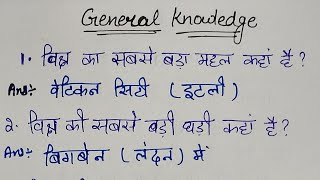 General Knowledge
1. विश्व का सबसे बड़ा महल कहां है?
Ans:- वैटिकन सिटी (इटली)
2. विश्व की सबसे बड़ी घड़ी कहां है?
Ans:- बिगबेन (लंदन) में